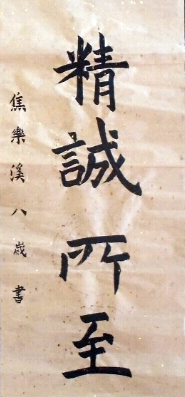 精誠所至
焦樂溪八歲書